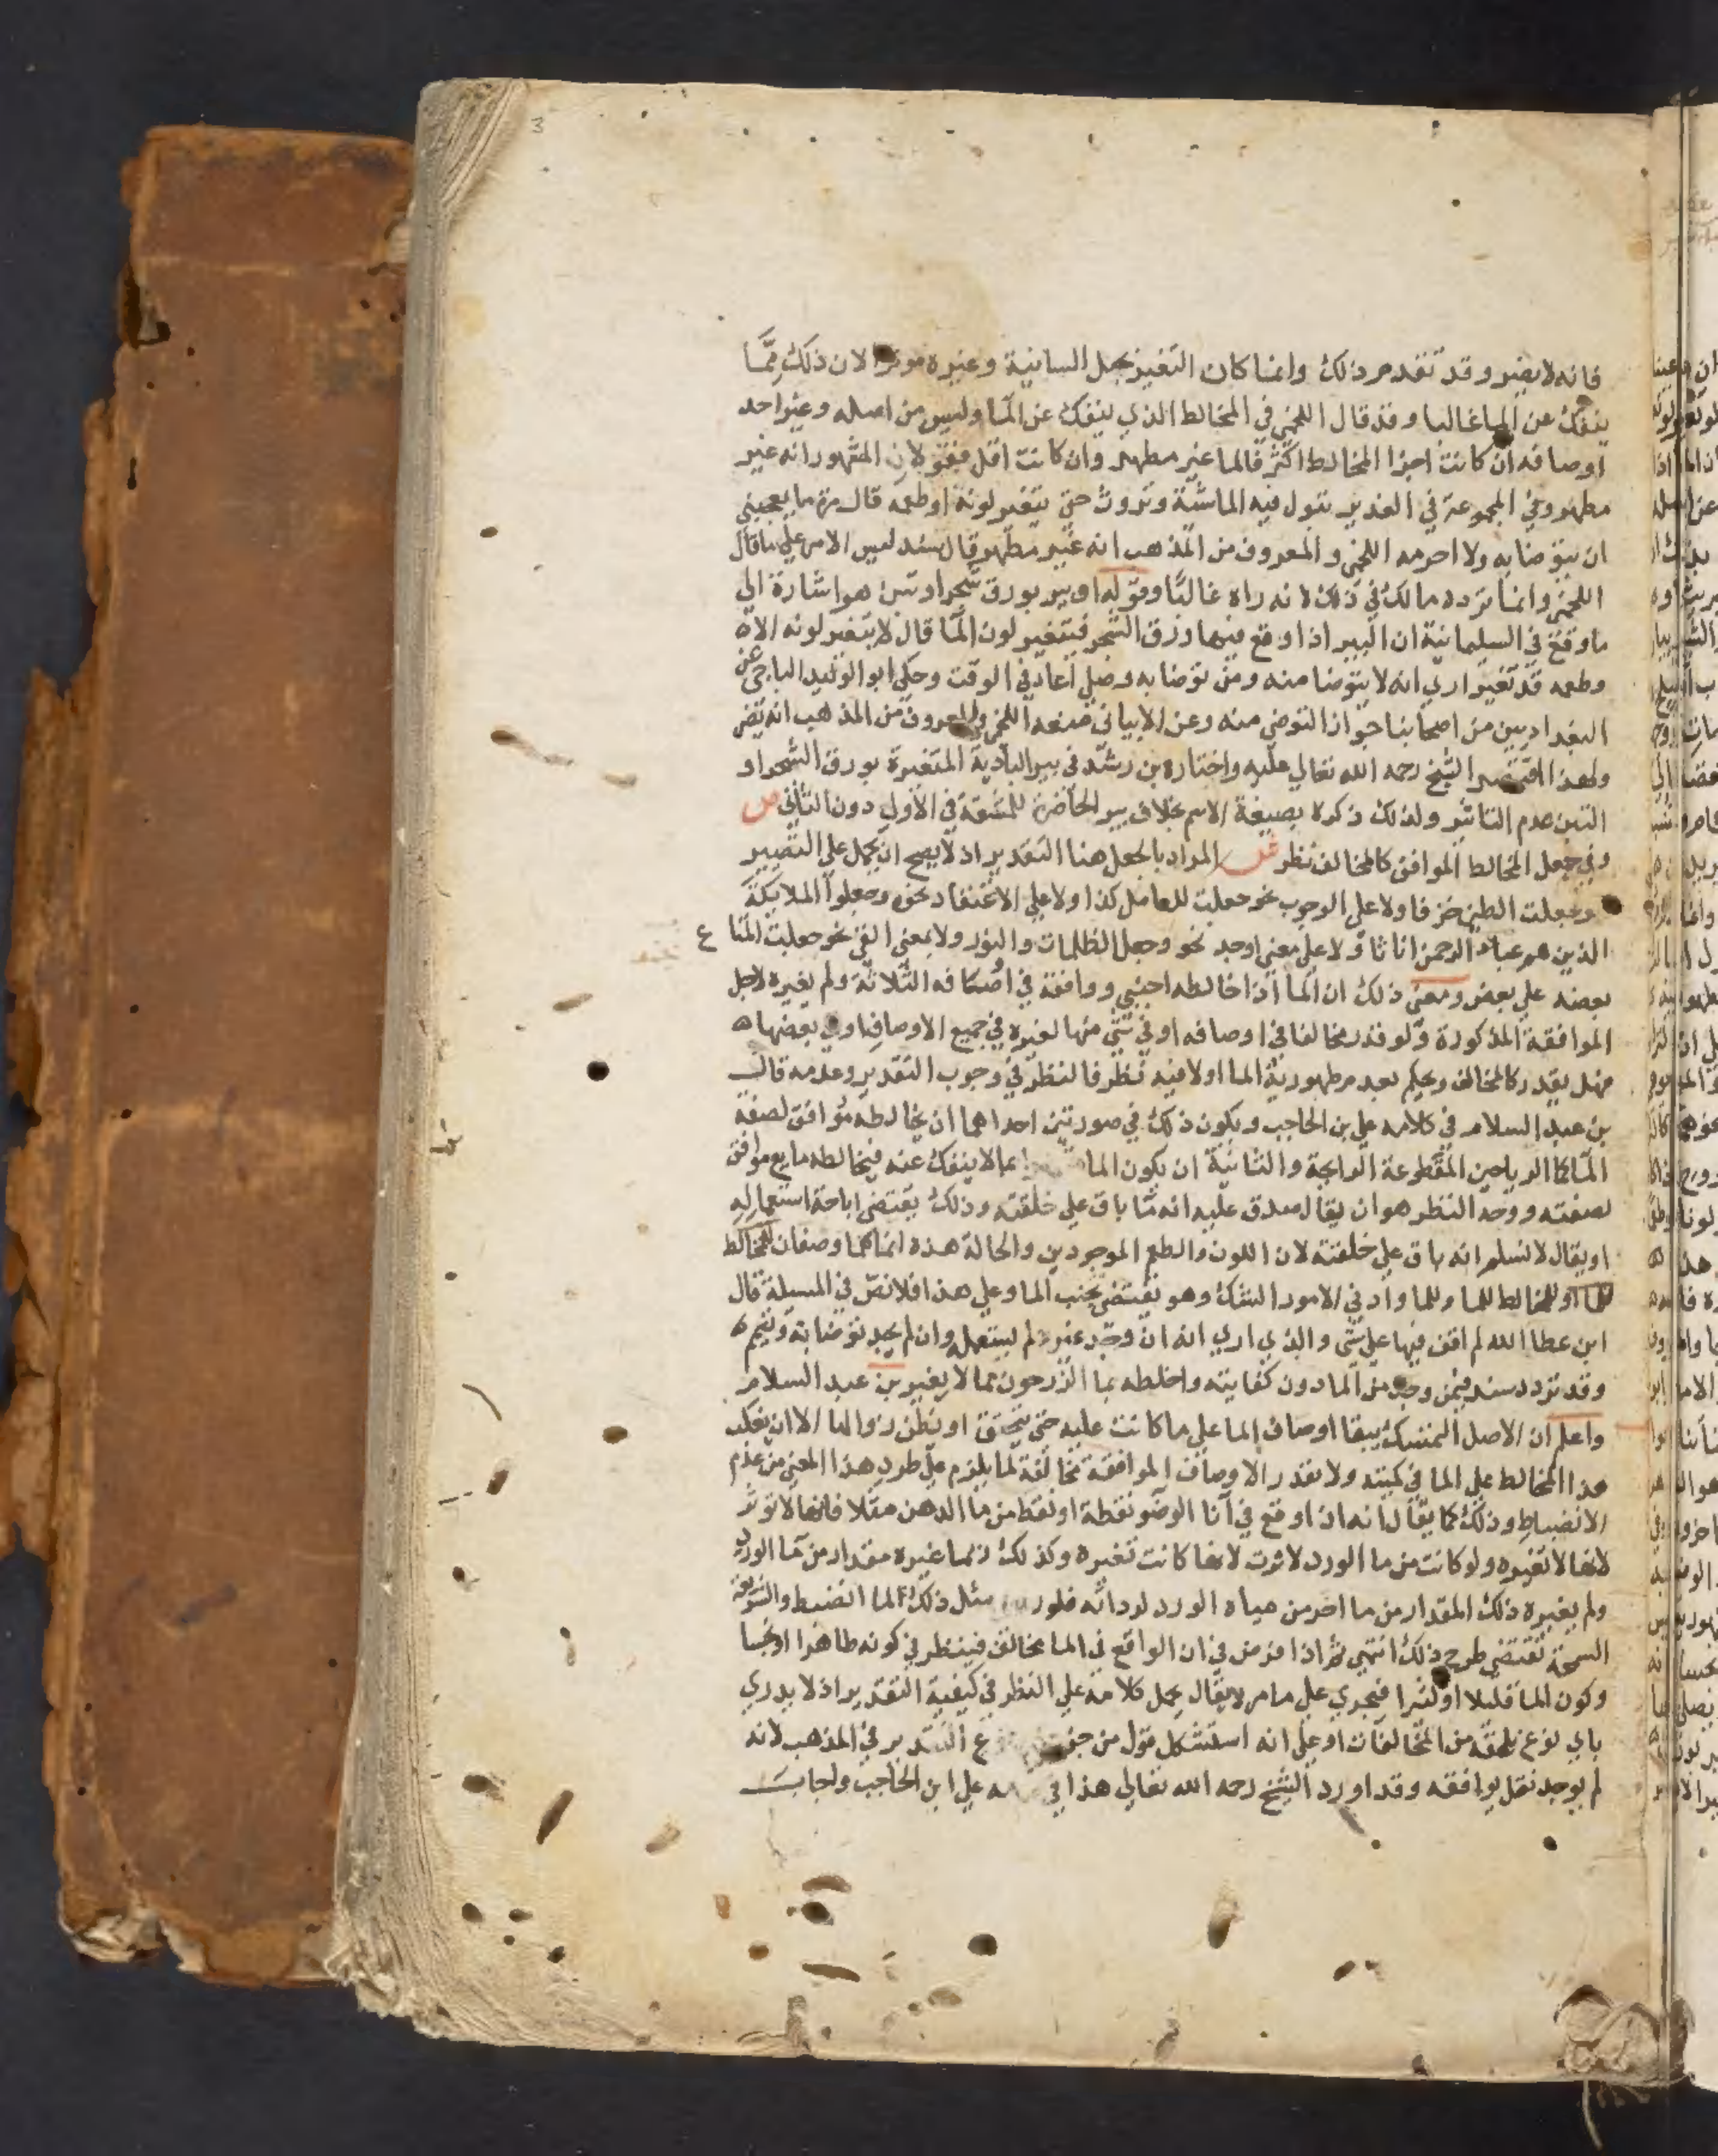 3
فانه لا يضر وقد تقدم ذلك وانما كان التغير بحبل السانية وغيره موثرا لان ذلك ممّا
ينفك عن الما غالبا وقد قال اللخمي في المخالط الذي ينفك عن الما وليس من اصله وغير احد
اوصافه ان كانت اجزا المخالط اكثر فالما غير مطهر وان كانت اقل فقولان المشهور انه غير
مطهر وفي المجموعة في الغدير تبول فيه الماشية وتروث حتي يتغير لونه او طعمه قال مرة ما يعجبني
ان يتوضا به ولا احرمه اللخمي والمعروف من المذهب انه غير مطهر قال سند ليس الامر علي ما قال
اللخمي وانما تردد مالك في ذلك لانه راه غالبا وقوله او بير بورق شجر او تبن هو اشارة الي
ما وقع في السليمانية ان البير اذا وقع فيها ورق الشجر فيتغير لون الما قال لا يتغير لونه الا
وطعمه قد تغير اري انه لا يتوضا منه ومن توضا به وصلي اعاد في الوقت وحكي ابو الوليد الباجي عن
البغداديين من اصحابنا جواز التوضي منه وعن الابياني منعه اللخمي والمعروف من المذهب انه يضر
ولهذا الشيخ رحمه الله تعالي عليه واختاره بن رشد في بير البادية المتغيرة بورق الشجر او
التبن عدم التاثير ولذلك ذكره بصيغة الاسم بخلاف بير الحاضرة للمشقة في الاول دون الثاني ص
وفي جعل المخالط الموافق كالمخالف نظر ش المراد بالجعل هنا التقدير اذ لا يصح ان يحمل علي التصيير
نحو جعلت الطين خزفا ولا علي الوجوب نحو جعلت للعامل كذا ولا علي الاعتقاد نحو وجعلوا الملايكة
الذين هم عباد الرحمن اناثا ولا علي معني اوجد نحو وجعل الظلمات والنور ولا بمعني القي نحو جعلت المتاع
بعضه علي بعض ومعني ذلك ان الما اذا خالطه اجنبي ووافقه في اوصافه الثلاثة ولم يغيره لاجل
الموافقة المذكورة ولو قدر مخالفا في اوصافه او في شي منها لغيره في جميع الاوصاف او في بعضها
فهل يقدر كالمخالف ويحكم بعدم طهورية الما اولا فيه نظر فالنظر في وجوب التقدير وعدمه قال
بن عبد السلام في كلامه علي بن الحاجب ويكون ذلك في صورتين احداهما ان يخالطه موافق لصفة
الما كما الرياحين المقطوعة الرايحة والثانية ان يكون الما بما لا ينفك عنه فيخالطه مايع موافق
لصفته ووجه النظر هو ان يقال صدق عليه انه ما باق علي خلقته وذلك يقتضي اباحة استعماله
او يقال لا نسلم انه باق علي خلقته لان اللون والطعم الموجودين والحالة هذه انما هما وصفان للمخالط
او للمخالط للما وللما وادني الامور الشك وهو يقتضي تجنب الما وعلي هذا فلا نص في المسيلة قال
ابن عطا الله لم اقف فيها علي شي والذي اري انه ان وجد غيره لم يستعمله وان لم يجد توضا به وتيمم
وقد تردد سند فيمن وجد من الما دون كفايته واخلطه بما الزرجون مما لا يغير بن عبد السلام
واعلم ان الاصل التمسك ببقا اوصاف الما علي ما كانت عليه حتي يتحقق او يظن زوالها الا ان يغلب
هذا المخالط علي الما في كميته ولا نقدر الاوصاف الموافقة مخالفة لما يلزم علي طرد هذا المعني من عدم
الانضباط وذلك كما يقال انه ان وقع في انا الوضو نقطة او نقط من ما الدهن مثلا فانها لا توثر
لانها لا تغيره ولو كانت من ما الورد لاثرت لانها كانت تغيره وكذلك ربما غيره مقدار من ما الورد
ولم يغيره ذلك المقدار من ما اخر من مياه الورد لرداته فلو مثل ذلك لما انضبط والشريعة
السمحة تقتضي طرح ذلك انتهي ثم اذا فرض في ان الواقع في الما مخالف فينظر في كونه طاهرا او نجسا
وكون الما قليلا او كثيرا فيجري علي ما مر لا يقال يحمل كلامه علي النظر في كيفية التقدير اذ لا يدري
باي نوع يلحقه من المخالفات او علي انه استشكل قول من التقدير في المذهب لانه
لم يوجد نقل يوافقه وقد اورد الشيخ رحمه الله تعالي هذا في علي ابن الحاجب واجاب